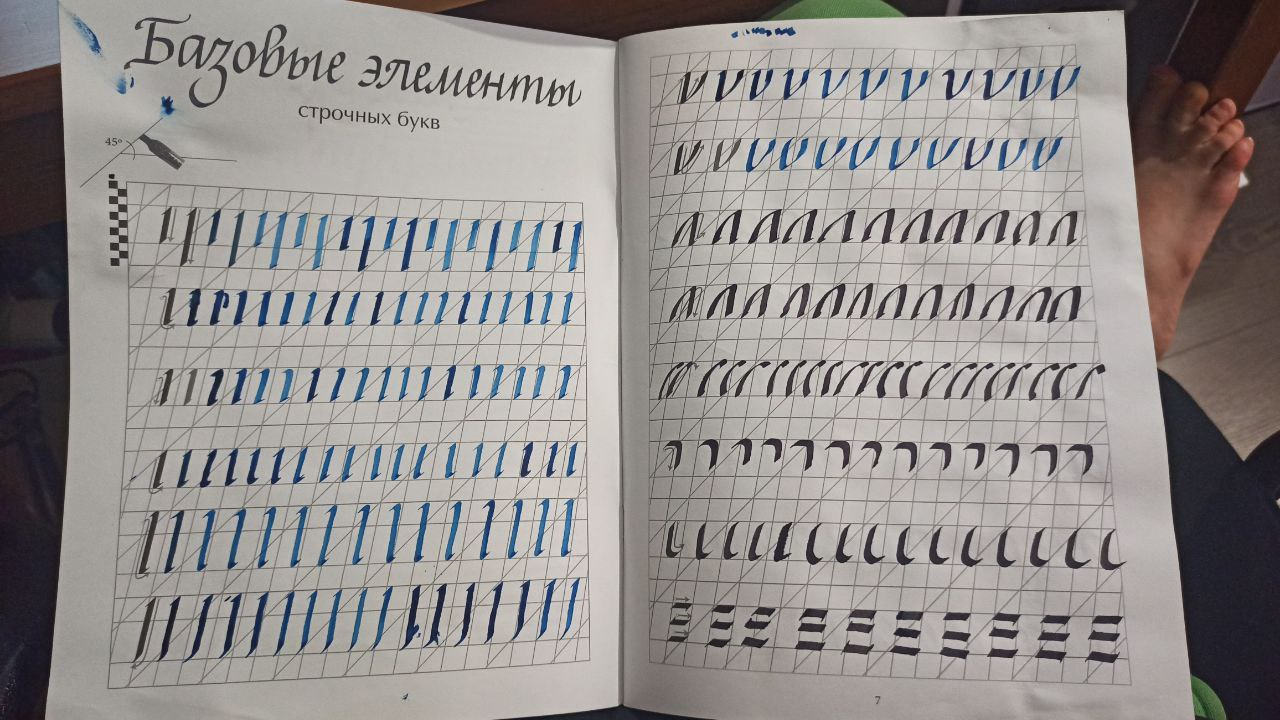 Базовые элементы
строчных букв
45°
4
7